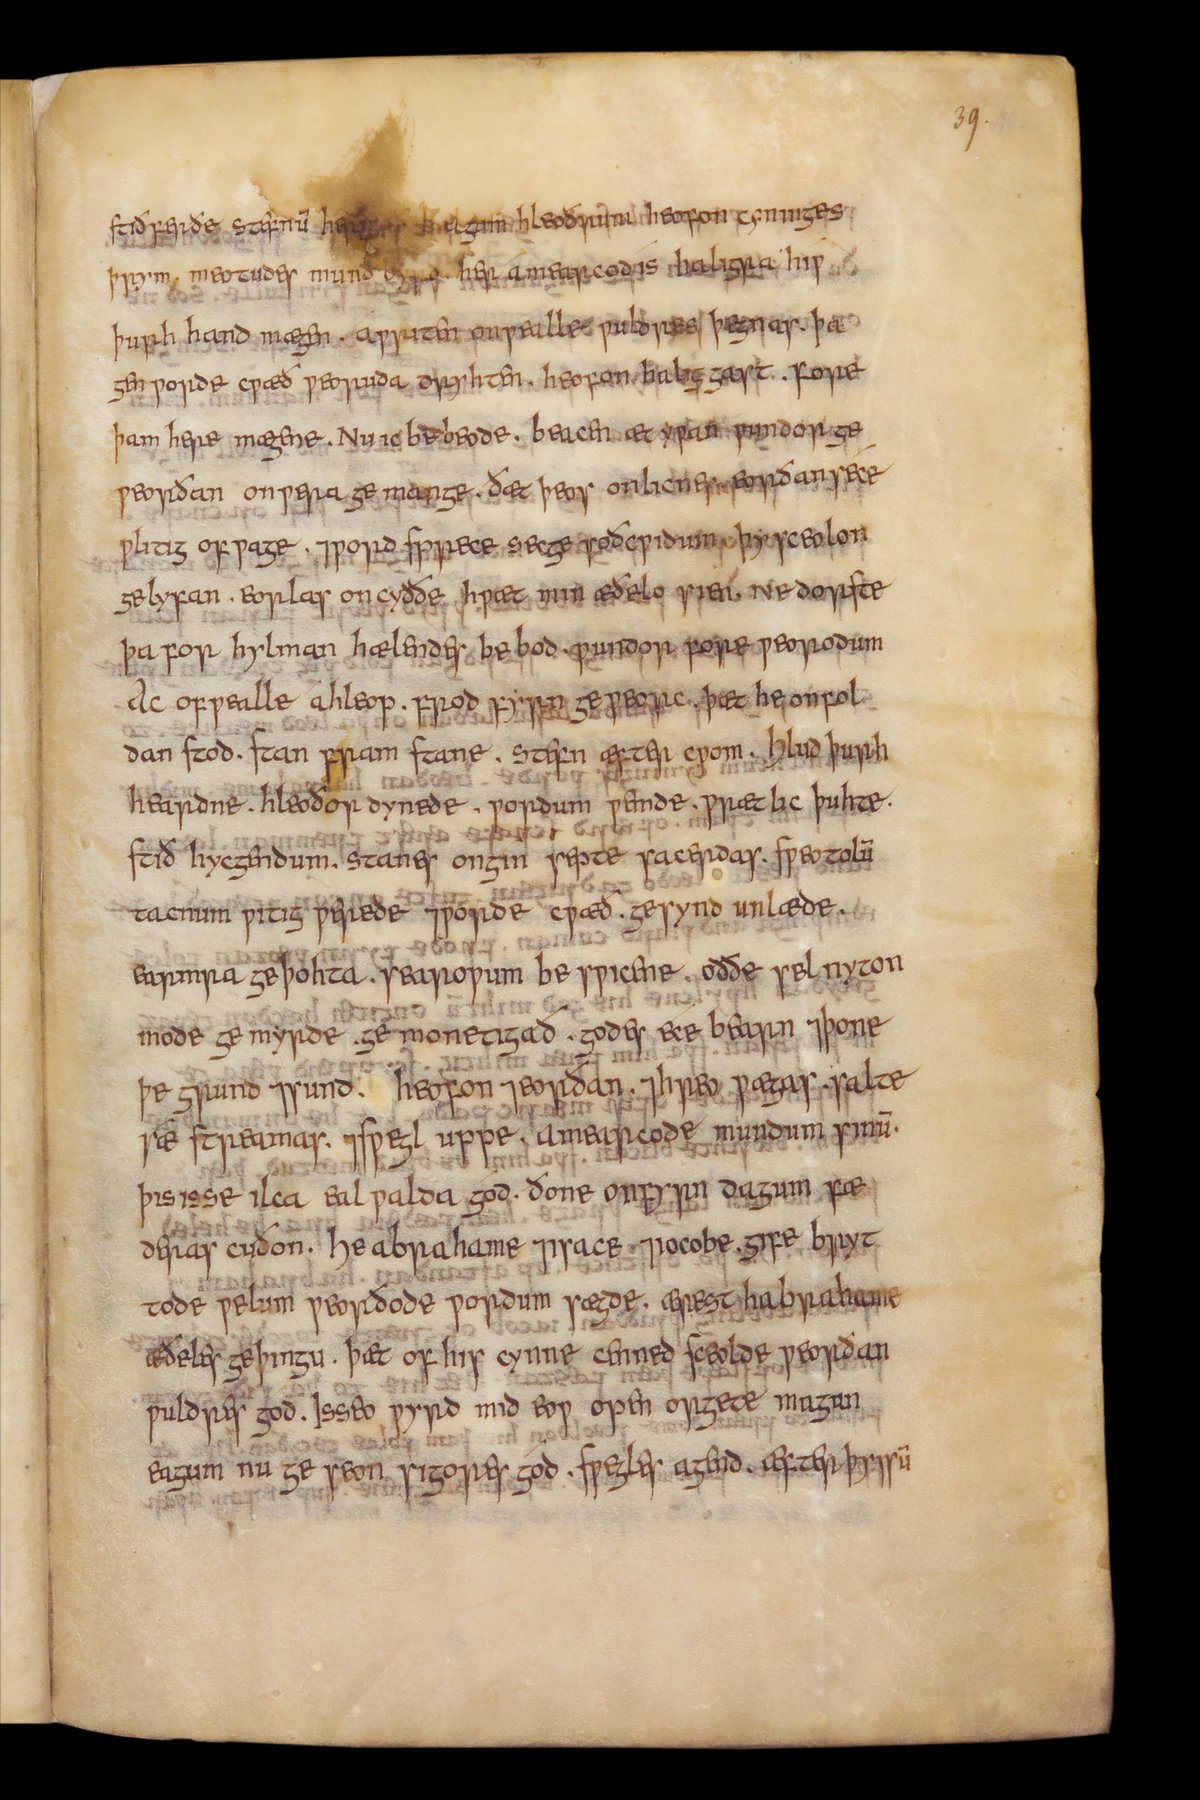 39.
stiðferðe stefnū heriað halgum hleoðrum heofon cyninges
þrym. meotudes mund byrd. her amearcod is haligra hiƿ
þurh hand mægen. aƿriten onƿealle ƿuldres þegnas. þa
gen ƿorde cƿæð ƿeoruda dryhten. heofon halig gast. fore
þam here mægene. Nu ic be beode. beacen æt yƿan ƿundor ge
ƿeorðan onƿera ge mange. ðæt þeos onlicnes eorðan sece
ƿlitig of ƿage. ⁊ƿord sprece secge soðcƿidum þy sceolon
gelyfan. eorlas oncyððe hƿæt min æðelo sien. Ne dorste
þa for hylman hælendes be bod. ƿundor fore ƿeorodum
Ac of ƿealle ahleop. frod fyrn geƿeorc. þæt he onfol
dan stod. stan fram stane. stefn æfter cƿom. hlud þurh
heardne. hleoðor dynede. ƿordum ƿemde. ƿrætlic þuhte.
stið hycgendum. stanes ongin septe sacerdas. sƿeotolū
tacnum ƿitig ƿerede ⁊ƿorde cƿæð. gesynd unlæde.
earmra geþohta. searoƿum be sƿicene. oððe sel nyton
mode ge myrde. ge monetigað. godes ece bearn ⁊þone
þe grund ⁊sund. heofon ⁊eorðan. ⁊hreo ƿægas. salte
sæ streamas. ⁊sƿegl uppe. amearcode mundum sinū.
þis is se ilca eal ƿalda god. ðone onfyrn dagum fæ
deras cuðon. he abrahame ⁊isace ⁊iocobe. gife bryt
tode ƿelum ƿeorðode ƿordum sægde. ærest habrahame
æðeles geþingu. þæt of his cynne cenned sceolde ƿeorðan
ƿuldres god. Is seo ƿyrd mid eoƿ open orgete magan
eagum nu ge seon sigores god. sƿegles agend. æfter þyssū